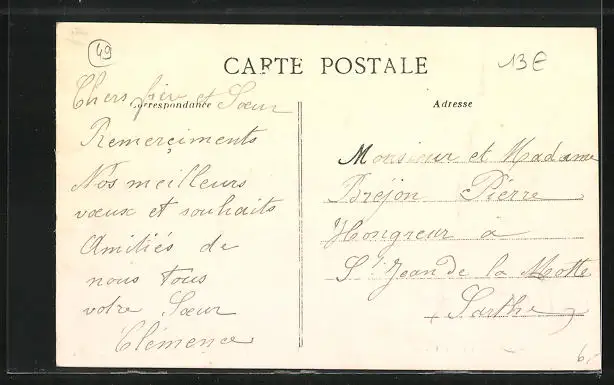 49
13E
CARTE POSTALE
Correspondance
Adresse
Chers frère et Sœur
Remerçiments
Nos meilleurs
vœux et souhaits
Amitiés de
nous tous
votre Sœur
Clémence
Monsieur et Madame
Brejon Pierre
Hongreur à
St Jean de la Motte
Sarthe
6,-